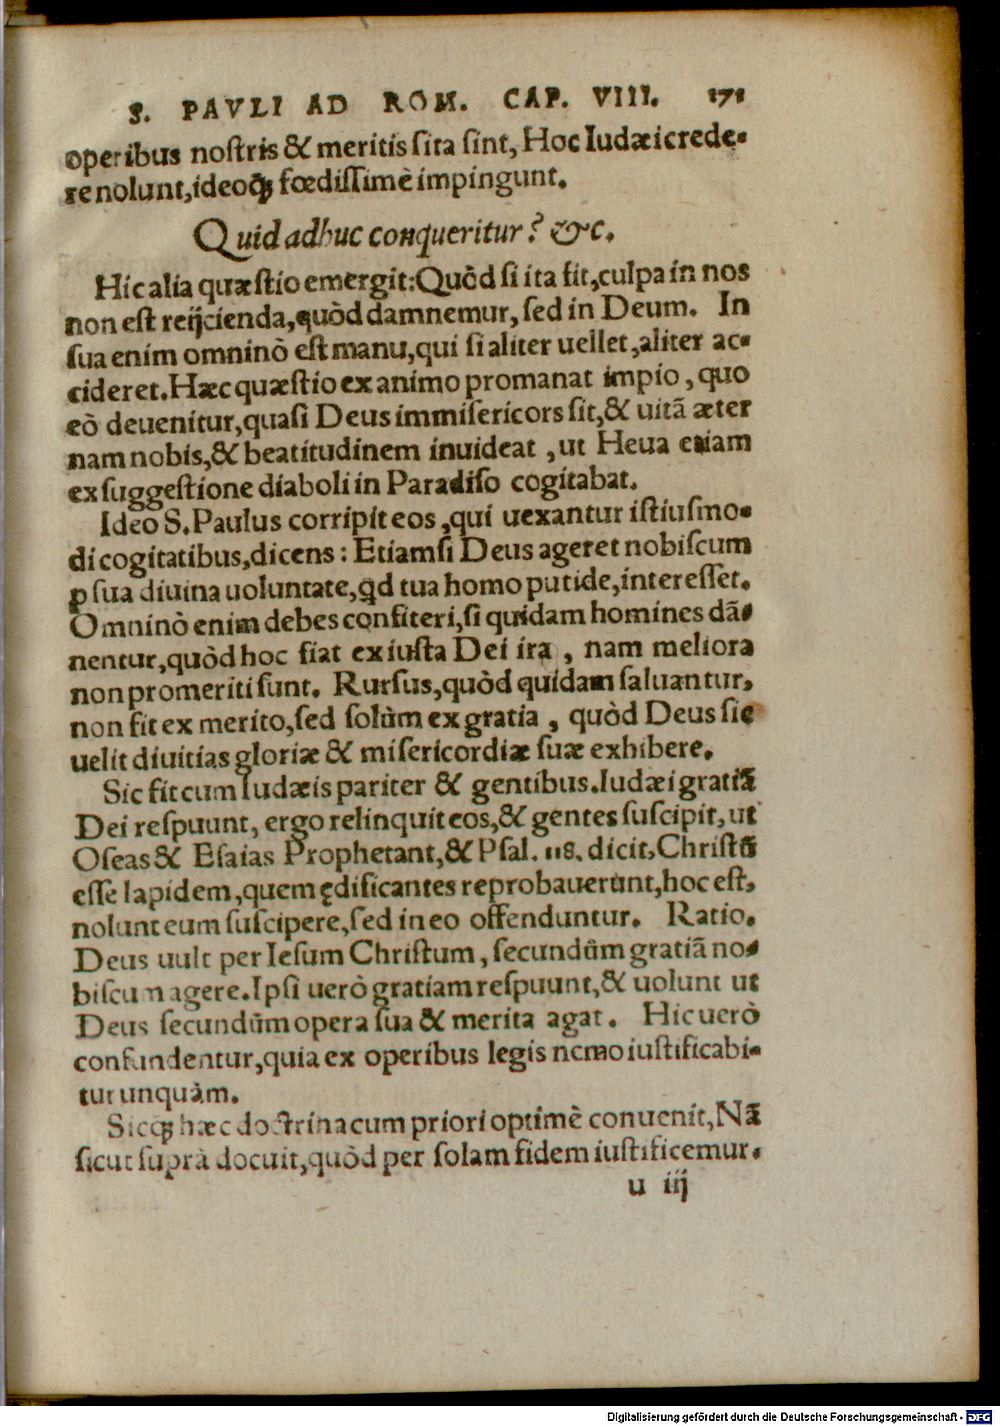 S. PAVLI AD ROM. CAP. VIII. 171
operibus nostris & meritis sita sint, Hoc Iudæi crede-
re nolunt, ideoq́ꝫ fœdissimè impingunt.
Quid adhuc conqueritur? &c.
Hic alia quæstio emergit: Quòd si ita fit, culpa in nos
non est reijcienda, quòd damnemur, sed in Deum. In
sua enim omninò est manu, qui si aliter uellet, aliter ac-
cideret. Hæc quæstio ex animo promanat impio, quo
eò deuenitur, quasi Deus immisericors sit, & uitā æter
nam nobis, & beatitudinem inuideat, ut Heua etiam
ex suggestione diaboli in Paradiso cogitabat.
Ideo S. Paulus corripit eos, qui uexantur istiusmo-
di cogitatibus, dicens: Etiamsi Deus ageret nobiscum
ꝓ sua diuina uoluntate, qd tua homo putide, interesset.
Omninò enim debes confiteri, si quidam homines dā-
nentur, quòd hoc fiat ex iusta Dei ira, nam meliora
non promeriti sunt. Rursus, quòd quidam saluantur,
non fit ex merito, sed solùm ex gratia, quòd Deus sic
uelit diuitias gloriæ & misericordiæ suæ exhibere.
Sic fit cum Iudæis pariter & gentibus. Iudæi gratiā
Dei respuunt, ergo relinquit eos, & gentes suscipit, ut
Oseas & Esaias Prophetant, & Psal. 118. dicit, Christū
esse lapidem, quem ędificantes reprobauerunt, hoc est,
nolunt eum suscipere, sed in eo offenduntur. Ratio.
Deus uult per Iesum Christum, secundùm gratiā no-
biscum agere. Ipsi uerò gratiam respuunt, & uolunt ut
Deus secundùm opera sua & merita agat. Hic uerò
confundentur, quia ex operibus legis nemo iustificabi-
tur unquàm.
Sicq́ꝫ hæc doctrina cum priori optimè conuenit, Nā
sicut suprà docuit, quòd per solam fidem iustificemur.
u iij
Digitalisierung gefördert durch die Deutsche Forschungsgemeinschaft - DFG